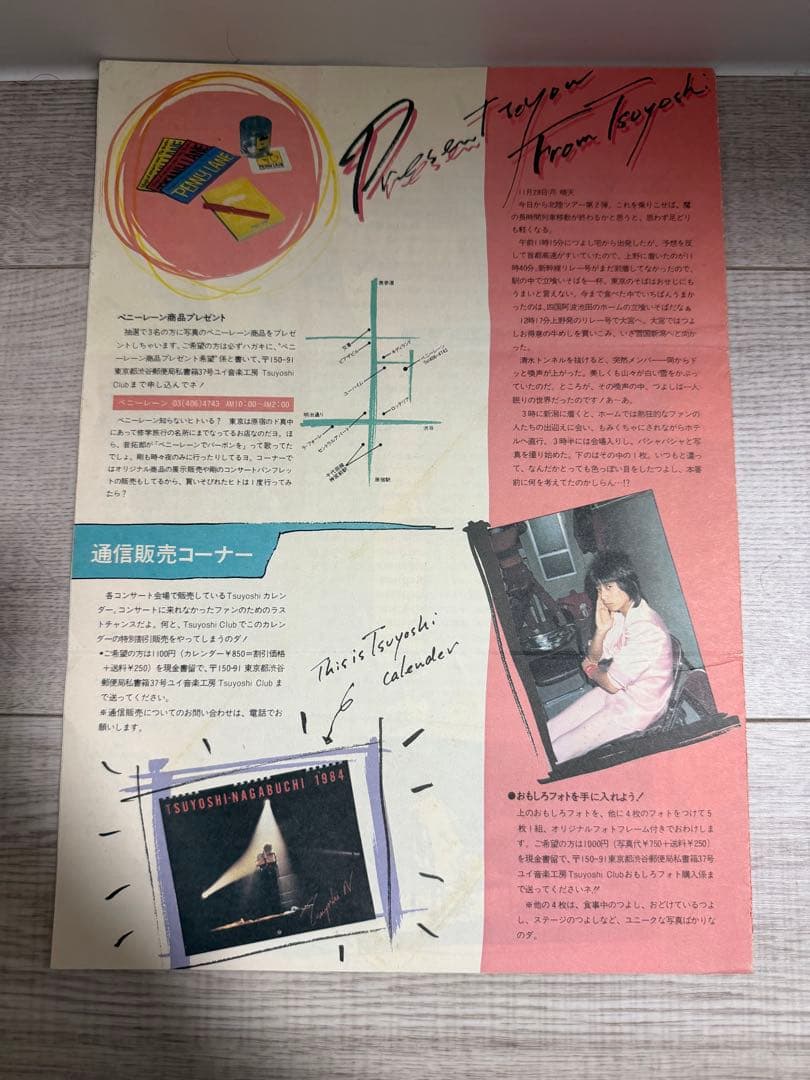 Present to you
From Tsuyoshi
PENNY LANE
ペニーレーン商品プレゼント
抽選で3名の方に写真のペニーレーン商品をプレゼ
ントしちゃいます。ご希望の方は必ずハガキに、"ペニ
ーレーン商品プレゼント希望"係と書いて、〒150-91
東京都渋谷郵便局私書箱37号ユイ音楽工房 Tsuyoshi
Clubまで申し込んでネ!
ペニーレーン 03(406)4743 AM10:00〜AM2:00
ペニーレーン知らないヒトいる? 東京は原宿のド真中
にあって修学旅行の名所にまでなってるお店なのだヨ。ほ
ら、吉拓郎が「ペニーレーンでバーボンを」って歌ってた
でしょ。剛も時々夜のみに行ったりしてるヨ。コーナーで
はオリジナル商品の展示販売や剛のコンサートパンフレッ
トの販売もしてるから、買いそびれたヒトは1度行ってみ
たら?
表参道
交番
ビブザビー
キディランド
ペニーレーン
Tel406-4743
ユーハイム
ロッテリア
明治通り
渋谷
ラ・フォーレ
セントラルアパート
千代田線
神宮前駅
原宿駅
通信販売コーナー
各コンサート会場で販売しているTsuyoshi カレン
ダー。コンサートに来れなかったファンのためのラス
トチャンスだよ。何と、Tsuyoshi Clubでこのカレン
ダーの特別割引販売をやってしまうのダ!
•ご希望の方は1100円(カレンダー¥850=割引価格
+送料¥250)を現金書留で、〒150-91 東京都渋谷
郵便局私書箱37号ユイ音楽工房 Tsuyoshi Club ま
で送ってください。
※通信販売についてのお問い合わせは、電話でお
願いします。
This is Tsuyoshi
calender
TSUYOSHI・NAGABUCHI 1984
Tsuyoshi N
11月29日(月) 晴天
今日から北陸ツアー第2弾。これを乗りこせば、魔
の長時間列車移動が終わるかと思うと、思わず足どり
も軽くなる。
午前11時15分につよし宅から出発したが、予想を反
して首都高速がすいていたので、上野に着いたのが11
時40分。新幹線リレー号がまだ到着してなかったので、
駅の中で立喰いそばを一杯。東京のそばはお世じにも
うまいと言えない。今まで食べた中でいちばんうまか
ったのは、四国阿波池田のホームの立喰いそばだなぁ
12時17分上野発のリレー号で大宮へ。大宮ではつよ
しお得意の牛めしを買いこみ、いざ雪国新潟へと向か
った。
清水トンネルを抜けると、突然メンバー一同からド
ッと噪声が上がった。美しくも山々が白い雪をかぶっ
ていたのだ。ところが、その噪声の中、つよしは一人
眠りの世界だったのです!あーあ。
3時に新潟に着くと、ホームでは熱狂的なファンの
人たちの出迎えに会い、もみくちゃにされながらホテ
ルへ直行。3時半には会場入りし、パシャパシャと写
真を撮り始めた。下のはその中の1枚。いつもと違っ
て、なんだかとっても色っぽい目をしたつよし、本番
前に何を考えてたのかしらん…!?
●おもしろフォトを手に入れよう!
上のおもしろフォトを、他に4枚のフォトをつけて5
枚1組、オリジナルフォトフレーム付きでおわけしま
す。ご希望の方は1000円(写真代¥750+送料¥250)
を現金書留で、〒150-91東京都渋谷郵便局私書箱37号
ユイ音楽工房Tsuyoshi Clubおもしろフォト購入係ま
で送ってくださいネ!!
※他の4枚は、食事中のつよし、おどけているつよ
し、ステージのつよしなど、ユニークな写真ばかりな
のダ。